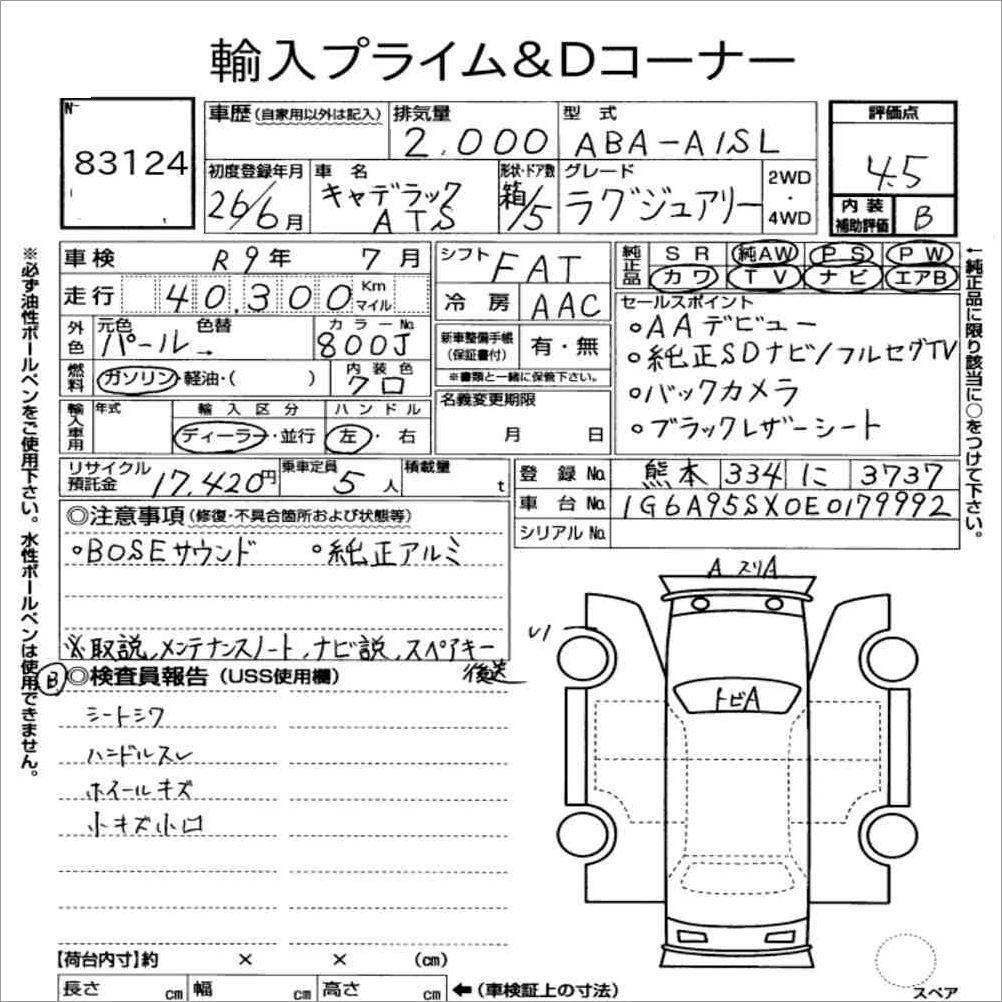 輸入プライム&Dコーナー
No
83124
車歴 (自家用以外は記入)
排気量
2.000
型式
ABA-A1SL
評価点
4.5
初度登録年月
26/6月
車名
キャデラック
ATS
形状・ドア数
箱/5
グレード
ラグジュアリー
2WD
・
4WD
内装
補助評価
B
車検 R9年 7月
走行 40,300 Km
マイル
外色
元色 パール→
色替
カラーNo.
800J
燃料
ガソリン・軽油・( )
内装色
クロ
輸入車用
年式
輸入区分
ディーラー・並行
ハンドル
左・右
シフト FAT
冷房 AAC
新車整備手帳
(保証書付)
有・無
※書類と一緒に保管下さい。
名義変更期限
月 日
純正品
SR 純AW PS PW
カワ TV ナビ エアB
セールスポイント
○AAデビュー
○純正SDナビ/フルセグTV
○バックカメラ
○ブラックレザーシート
リサイクル
預託金
17,420円
乗車定員
5人
積載量
t
登録No. 熊本 334 に 3737
車台No. 1G6A95SX0E0179992
シリアルNo.
◎注意事項 (修復・不具合箇所および状態等)
○BOSEサウンド ○純正アルミ
※取説,メンテナンスノート,ナビ説,スペアキー
後送
B ◎検査員報告 (USS使用欄)
シートシワ
ハンドルスレ
ホイールキズ
小キズ小凹
A スリA
トビA
スペア
【荷台内寸】約 × × (cm)
長さ cm 幅 cm 高さ cm ←(車検証上の寸法)
※必ず油性ボールペンをご使用下さい。水性ボールペンは使用できません。
←純正品に限り該当に○をつけて下さい。